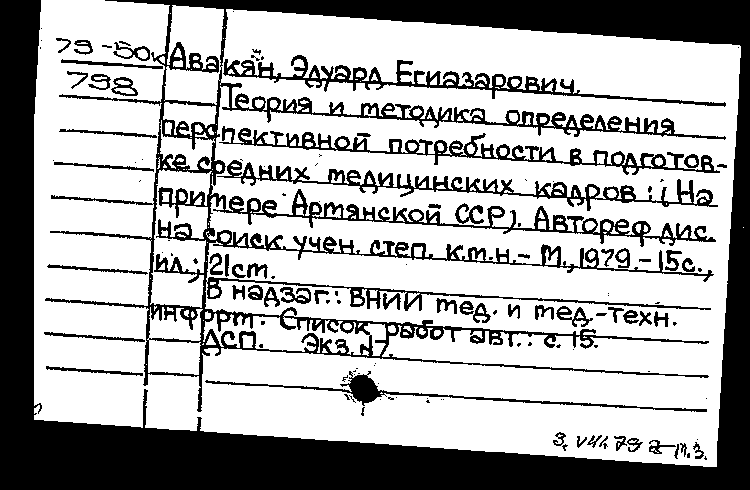 79-50к Авакян, Эдуард Егиазарович.
798 Теория и методика определения
перспективной потребности в подготов-
ке средних медицинских кадров : (На
примере Армянской ССР). Автореф. дис.
на соиск. учен. степ. к.м.н. - М., 1979. - 15с.,
ил.; 21см.
В надзаг.: ВНИИ мед. и мед.-техн.
информ. Список работ авт.: с. 15.
ДСП. Экз. N7.